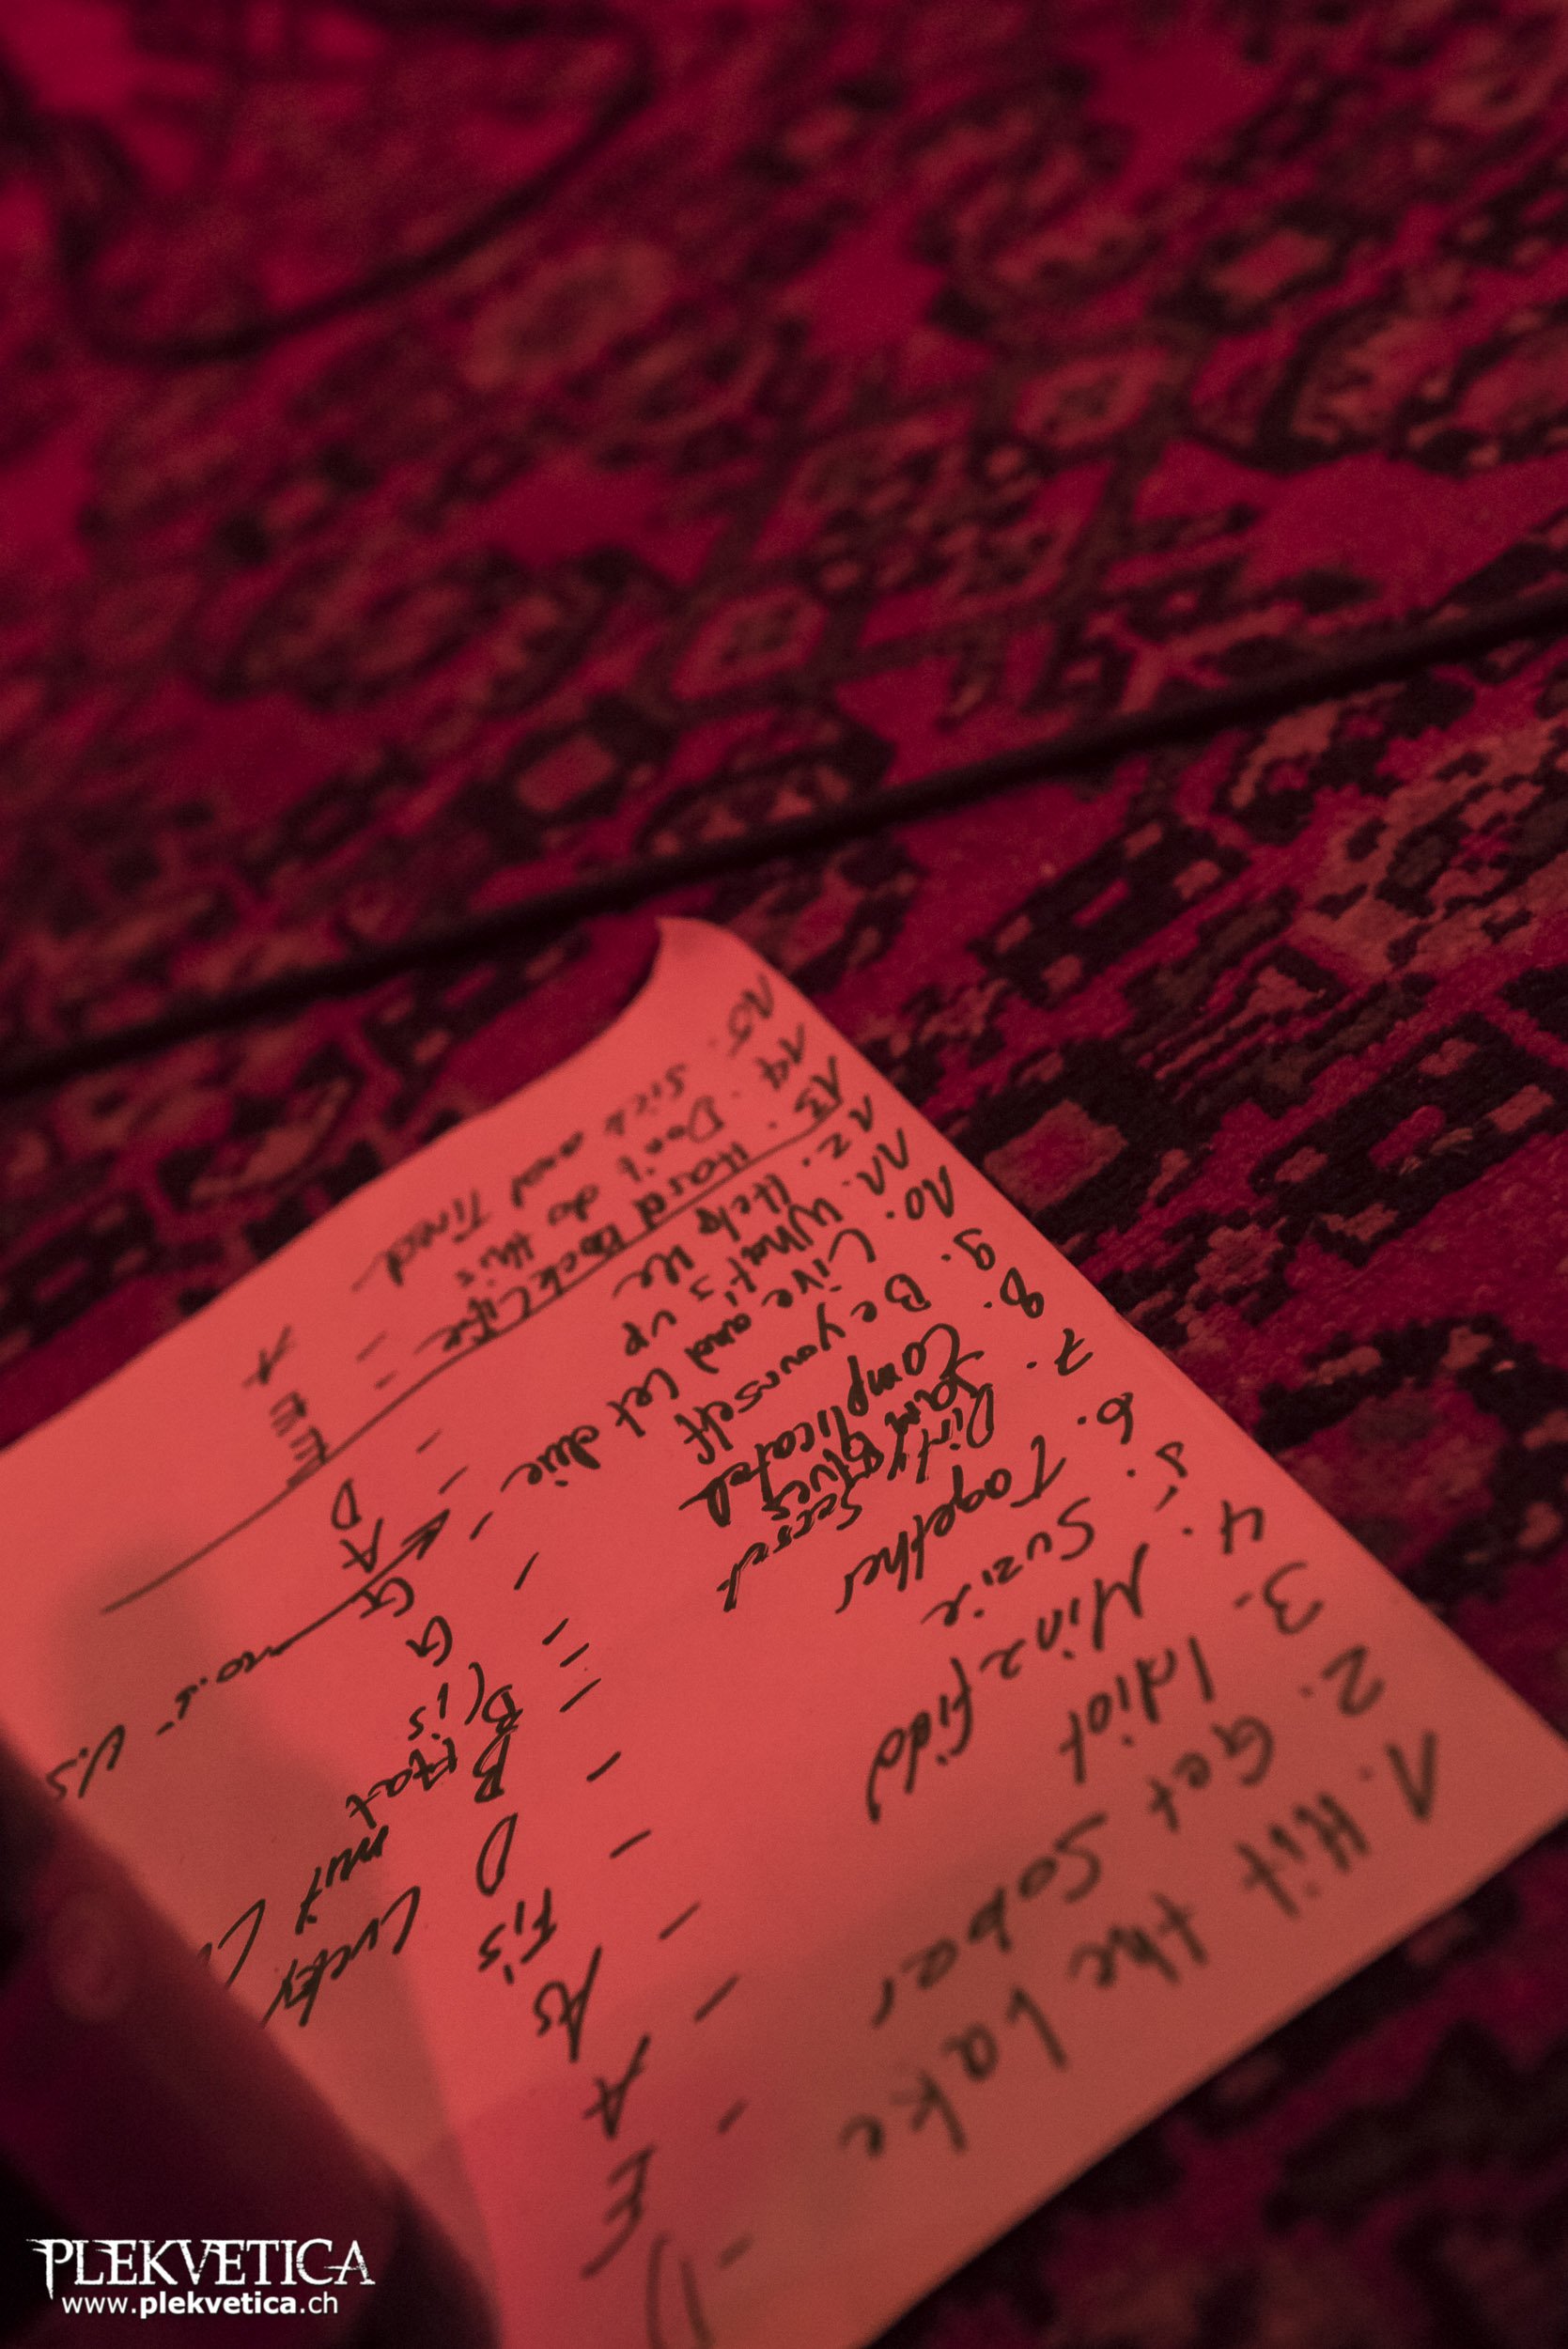 1. Hit the Lake - D
2. Get Sober - E
3. Idiot - A
4. Minefild - As
5. Suzie - Fis
6. Together - D Lucky
7. Dirty Secret - B Hat mut
Jam Blues
8. Complicated - B(is
9. Be yourself - G
10. Live and Let die - G
11. What's up - A
12. Help Me - D
13. Hard Rock Life - E
14. Don't do this - E
15. Sick and Tired A
PLEKVETICA
www.plekvetica.ch